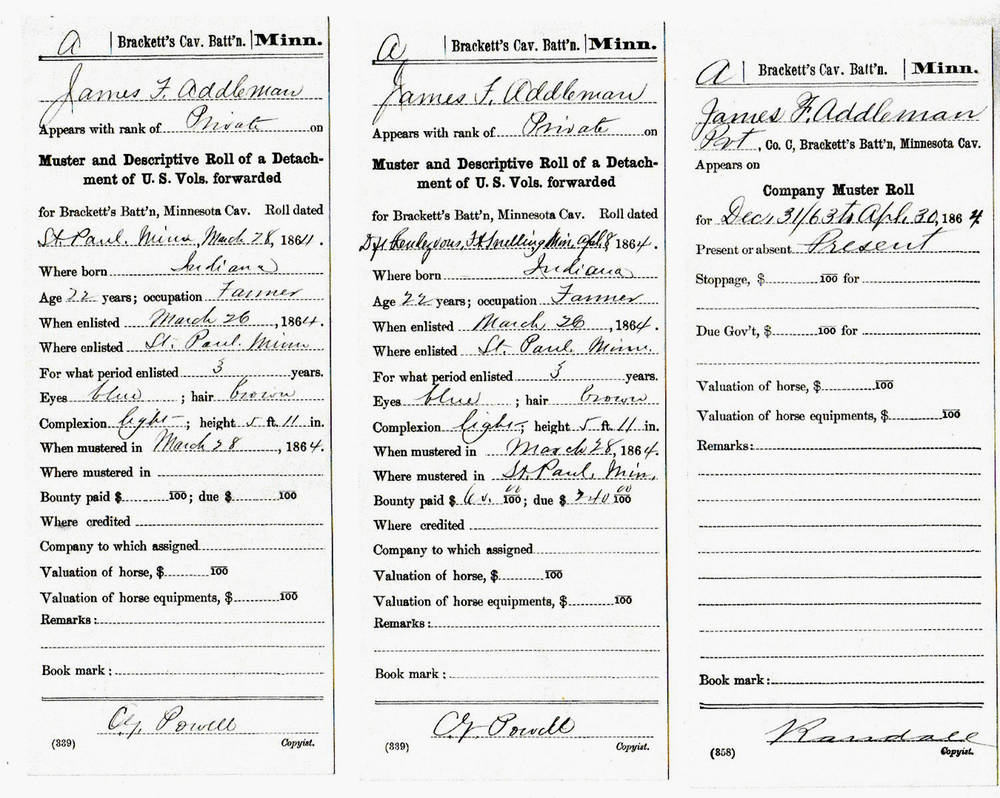 A | Brackett's Cav. Batt'n. | Minn.
James F. Addleman
Appears with rank of Private on
Muster and Descriptive Roll of a Detach-
ment of U. S. Vols. forwarded
for Brackett's Batt'n, Minnesota Cav. Roll dated
St. Paul. Minn, March 28, 1864.
Where born Indiana
Age 22 years; occupation Farmer
When enlisted March 26, 1864.
Where enlisted St. Paul. Minn
For what period enlisted 3 years.
Eyes blue; hair brown
Complexion light; height 5 ft. 11 in.
When mustered in March 28, 1864.
Where mustered in
Bounty paid $ 100; due $ 100
Where credited
Company to which assigned
Valuation of horse, $ 100
Valuation of horse equipments, $ 100
Remarks:
Book mark:
Powell
(339) Copyist.
A | Brackett's Cav. Batt'n. | Minn.
James F. Addleman
Appears with rank of Private on
Muster and Descriptive Roll of a Detach-
ment of U. S. Vols. forwarded
for Brackett's Batt'n, Minnesota Cav. Roll dated
Rendezvous, Ft Snelling Min. Apl. 8 1864.
Where born Indiana
Age 22 years; occupation Farmer
When enlisted March 26, 1864.
Where enlisted St. Paul. Minn.
For what period enlisted 3 years.
Eyes blue; hair brown
Complexion light; height 5 ft. 11 in.
When mustered in March 28, 1864.
Where mustered in St. Paul, Min.
Bounty paid $ 00 100; due $ 240 00 100
Where credited
Company to which assigned
Valuation of horse, $ 100
Valuation of horse equipments, $ 100
Remarks:
Book mark:
Powell
(339) Copyist.
A | Brackett's Cav. Batt'n. | Minn.
James F. Addleman
Pvt, Co. C, Brackett's Batt'n, Minnesota Cav.
Appears on
Company Muster Roll
for Dec, 31/63 to Apl. 30, 1864.
Present or absent Present
Stoppage, $ 100 for
Due Gov't, $ 100 for
Valuation of horse, $ 100
Valuation of horse equipments, $ 100
Remarks:
Book mark:
Randall
(358) Copyist.